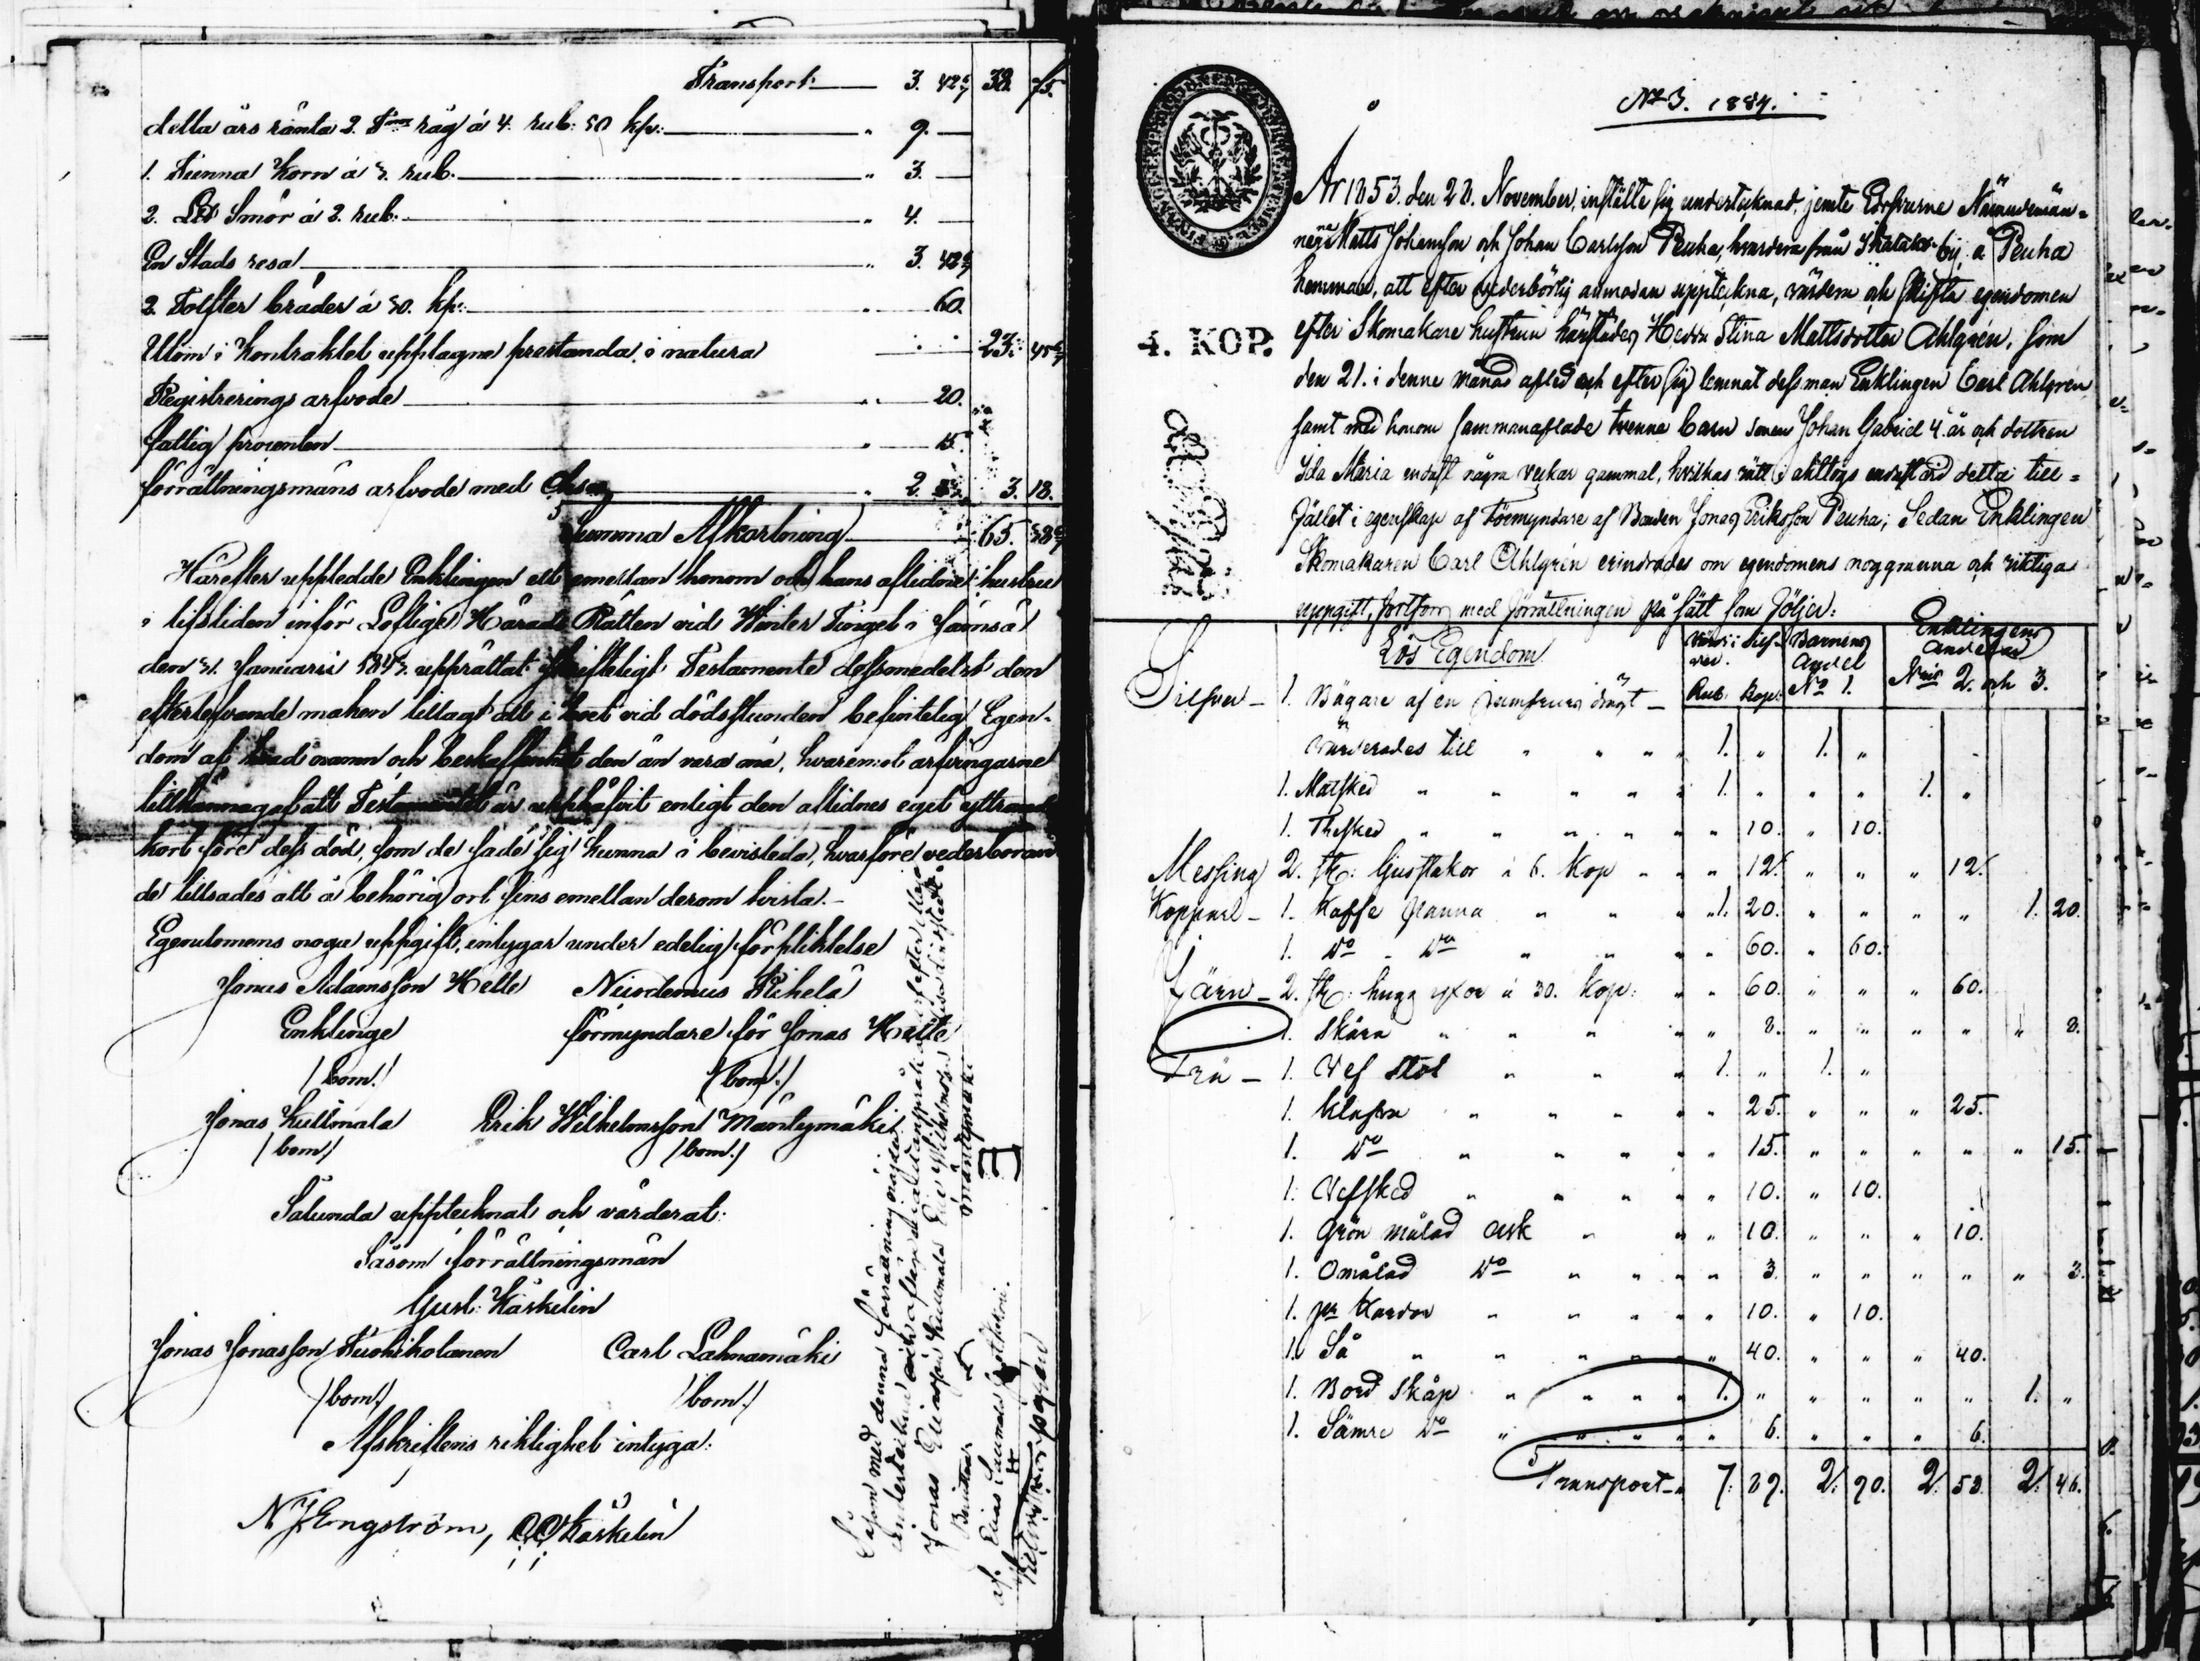 Transport 3. 42 6/7 38. 75.
detta års ränta 2. T:nor råg á 4. rub: 50 kp: " 9. —
1. Tunna Korn á 3. rub. " 3. —
2. L℔ Smör á 2. rub: " 4. —
En Stads resa " 3. 42 6/7
2. Tolfter bräder á 30. kp: " 60.
Utom i Kontraktet upptagne prestanda i natura 23. 45 5/7
Registrerings arfvode " 20.
fattig procenten " 15.
förrättningsmäns arfvode med " 2. 3. 18.
Summa Afkortning 65. 38 5/7
Härefter uppledde Enklingen ett emellan honom och hans aflidne hustru
i lifstiden inför Loflige Härads Rätten vid Winter Tinget i Jämsä
den 31. Januarii 1843. upprättat skrifteligt Testamente dessmedelst den
efterlefvande maken tillagt all i boet vid dödsstunden befintelig Egen-
dom af hvad namn och beskaffenhet den än vara må, hvaremot arfvingarne
tillkännagaf att Testamentet är upphäfvit enligt den aflidnes eget yttrande
kort före dess död, som de sade sig kunna i bevisleda, hvarföre vederboran
de tillsades att å behörig ort sins emellan derom tvista.-
Egendomens noga uppgift, intygar under edelig förpliktelse
Jonas Adamsson Helle Nicodemus Pihela
Enklinge förmyndare för Jonas Helle
/bom./ /bom./
Jonas Kullmala Erik Wilhelmsson Mäntymäki
/bom/ /bom./
Sålunda upptecknat och värderat:
Såsom förrättningsmän
Gust: Käskelin
Jonas Jonasson Tuohikolanen Carl Lahnamäki
/bom./ /bom./
Afskriftens riktighet intyga:
N J Engström, Käskelin
Såsom med denna förrättning nöjde
Jonas Kullmala Wilhelmsson
Mäntymäki
N:o 3. 1884.
4. KOP.
År 1853. den 28. November, instälte sig undertecknad, jemte Edsvurne Nämndemän-
nen Matts Johansson och Johan Carlsson Peuha, hvardera från by, å Peuha
hemman, att efter vederbörlig anmodan uppteckna, värdera och skifta egendomen
efter Skomakare hustrun härstädes Hedda Stina Mattsdotter Ahlgren, som
den 21. i denne månad afled och efter sig lemnat dess man Enklingen Carl Ahlgren
samt med honom sammanaflade tvenne barn sonen Johan Gabriel 4. år och dottren
Ida Maria endast några veckor gammal, hvilkas rätt i akttogs vid detta till-
fället i egenskap af Förmyndare af Bonden Jonas Eriksson Peuha; Sedan Enklingen
Skomakaren Carl Ahlgrén erindrades om egendomens noggranna och riktiga
uppgift, fortfors med förrättningen på sätt som följer:
Lös Egendom. Värde i Silf-ver. Barnens andel Enklingens andelar
Rub. Kop: N:o 1. N:ris 2. och 3.
Silfver — 1. Bägare af en —
värderades till " 1. " 1. "
1. Matsked " 1. " " " 1. "
1. Thesked " " 10. " 10.
Messing 2. st: ljusstakar á 6. kop " " 12. " " " 12.
Koppar — 1. Kaffe panna " 1. 20. " " " " 1. 20.
1. D:o D:o " " 60. " 60.
Järn — 2. st: hugg yxor á 30. kop: " " 60. " " " 60.
1. skära " " 8. " " " " " 8.
Trä — 1. Vef stol " 1. " 1. "
1. " " 25. " " " 25.
1. D:o " " 15. " " " " " 15.
1. Vefsked " " 10. " 10.
1. Grön målad ask " " 10. " " " 10.
1. Omålad D:o " " 3. " " " " " 3.
1. pr Kardor " " 10. " 10.
1. Så " " 40. " " " 40.
1. Bord skåp " 1. " " " " " 1. "
1. Sämre D:o " " 6. " " " 6.
Transport — 7. 89. 2. 90. 2. 53. 2. 46.